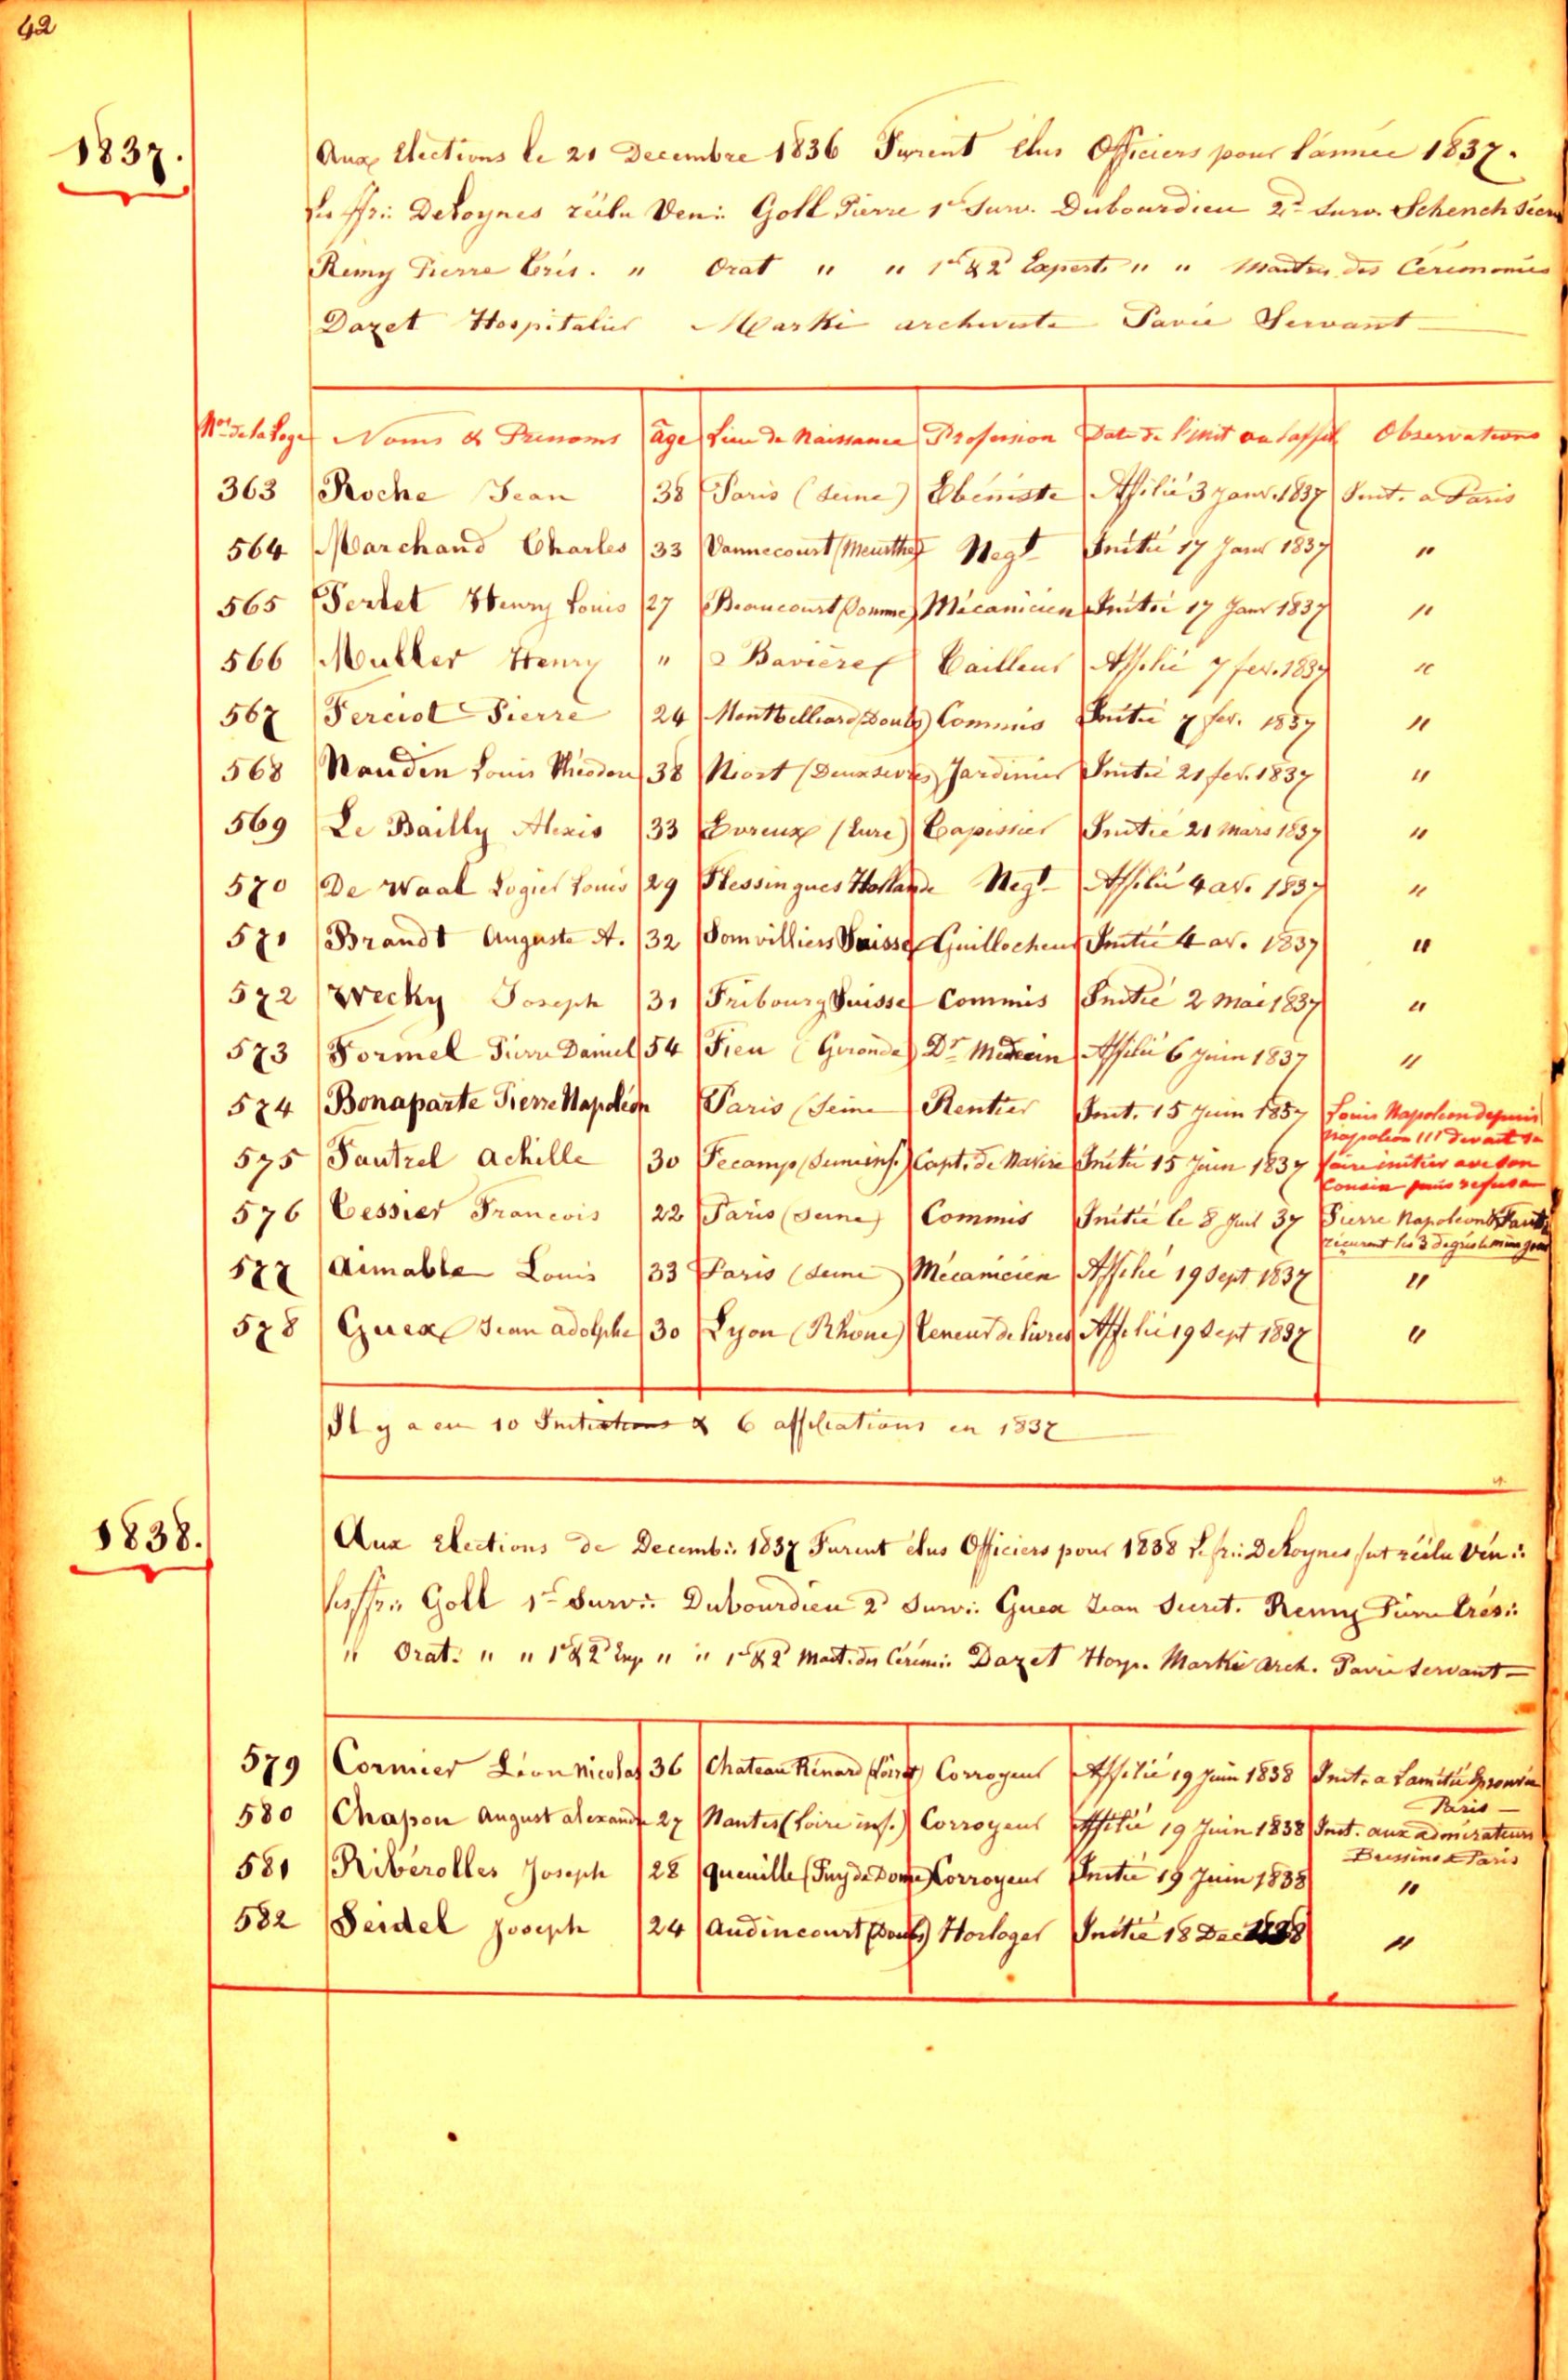 42
1837.
Aux Elections le 21 Decembre 1836 Furent élus Officiers pour l'année 1837.
Les ffr∴ Deloynes réélu Ven∴ Goll Pierre 1er Surv. Dubourdieu 2d Surv. Schench
Remy Pierre Trés. " Orat " " 1er & 2d Experts " " Maitres des Cérémonies
Dazet Hospitalier Marki archiviste Pavie Servant
Nos de la Loge Noms & Prenoms âge Lieu de Naissance Profession Date de l'init ou l'affil Observations
363 Roche Jean 38 Paris (Seine) Ebéniste Affilié 3 janv. 1837 Init. a Paris
564 Marchand Charles 33 Vannecourt (Meurthe) Negt Initié 17 Janv 1837 "
565 Henry Louis 27 Beaucourt (Somme) Mécanicien Initié 17 Janv 1837 "
566 Muller Henry " Bavière Tailleur Affilié 7 fev. 1837 "
567 Perciot Pierre 24 Montbelliard (Doubs) Commis Initié 7 fev. 1837 "
568 Naudin Louis Théodore 38 Niort (Deux sevres) Jardinier Initié 21 fev. 1837 "
569 Le Bailly Alexis 33 Evreux (Eure) Tapissier Initié 21 Mars 1837 "
570 De Waal Rogier Louis 29 Flessingues Hollande Negt Affilié 4 av. 1837 "
571 Brandt Auguste A. 32 Somvilliers Suisse Guillocheur Initié 4 av. 1837 "
572 Wecky Joseph 31 Fribourg Suisse Commis Initié 2 Mai 1837 "
573 Formel Pierre Daniel 54 (Gironde) Dr Medecin Affilié 6 Juin 1837 "
574 Bonaparte Pierre Napoléon Paris (Seine Rentier Init. 15 Juin 1837 Louis Napoleon depuis
Napoléon III devait se
575 Fautrel Achille 30 Fecamp (Seine inf.) Capt. de Navire Initié 15 Juin 1837 faire initier avec son
Cousin puis refusa
576 Tessier Francois 22 Paris (Seine) Commis Initié le 8 Juil 37 Pierre Napoleon &
recurent les 3 degrés le même jour
577 Aimable Louis 33 Paris (Seine) Mécanicien Affilié 19 Sept 1837 "
578 Guex Jean adolphe 30 Lyon (Rhone) Teneur de livres Affilié 19 Sept 1837 "
Il y a eu 10 Initiations & 6 affiliations en 1837
1838.
Aux Elections de Decemb∴ 1837 Furent élus Officiers pour 1838 le fr∴ Deloynes fut réélu Vén∴
les ffr∴ Goll 1er Surv∴ Dubourdieu 2d Surv∴ Guex Jean Secret. Remy Pierre Trés∴
" Orat. " " 1er & 2d Exp " " 1er & 2d Mait. des Cérém∴ Dazet Hosp. Marki Arch. Pavie Servant
579 Cormier Léon Nicolas 36 Chateau Renard (Loiret) Corroyeur Affilié 19 Juin 1838 Init. a L'amitié éprouvée
Paris
580 Chapon August alexandre 27 Nantes (Loire inf.) Corroyeur Affilié 19 Juin 1838 Init. aux admirateurs
a Paris
581 Ribérolles Joseph 28 queuille (Puy de Dome) Corroyeur Initié 19 Juin 1838 "
582 Seidel Joseph 24 Audincourt (Doubs) Horloger Initié 18 Dec 1838 "